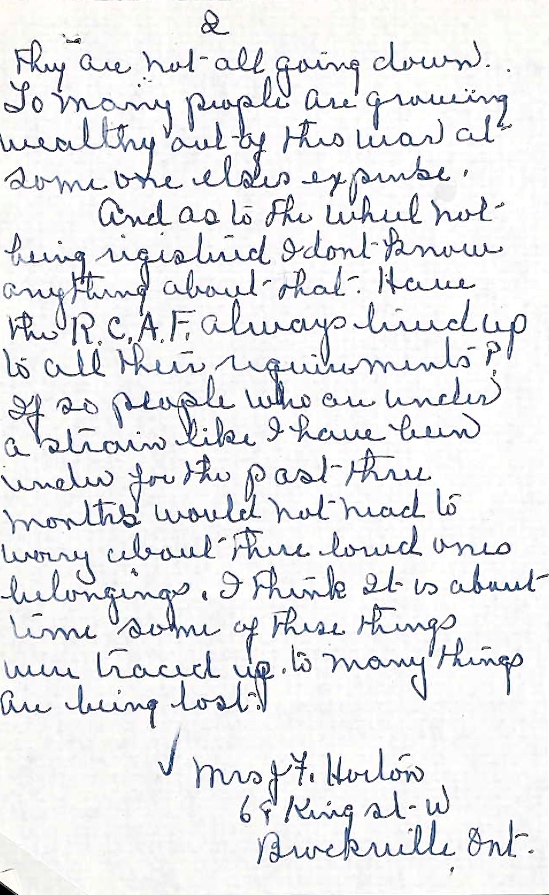 2
They are not all going down..
To many people are growing
wealthy out of this war at
some one elses expense.
And as to the wheel not
being registired I dont know
anything about that. Have
the R.C.A.F. always lived up
to all their requirements?
If so people who are under
a strain like I have been
under for the past three
months would not head to
worry about there loved ones
belongings. I think It is about
time some of these things
were traced up. to many things
are being lost.
Mrs J F. Horton
King st-W
Brockville Ont.